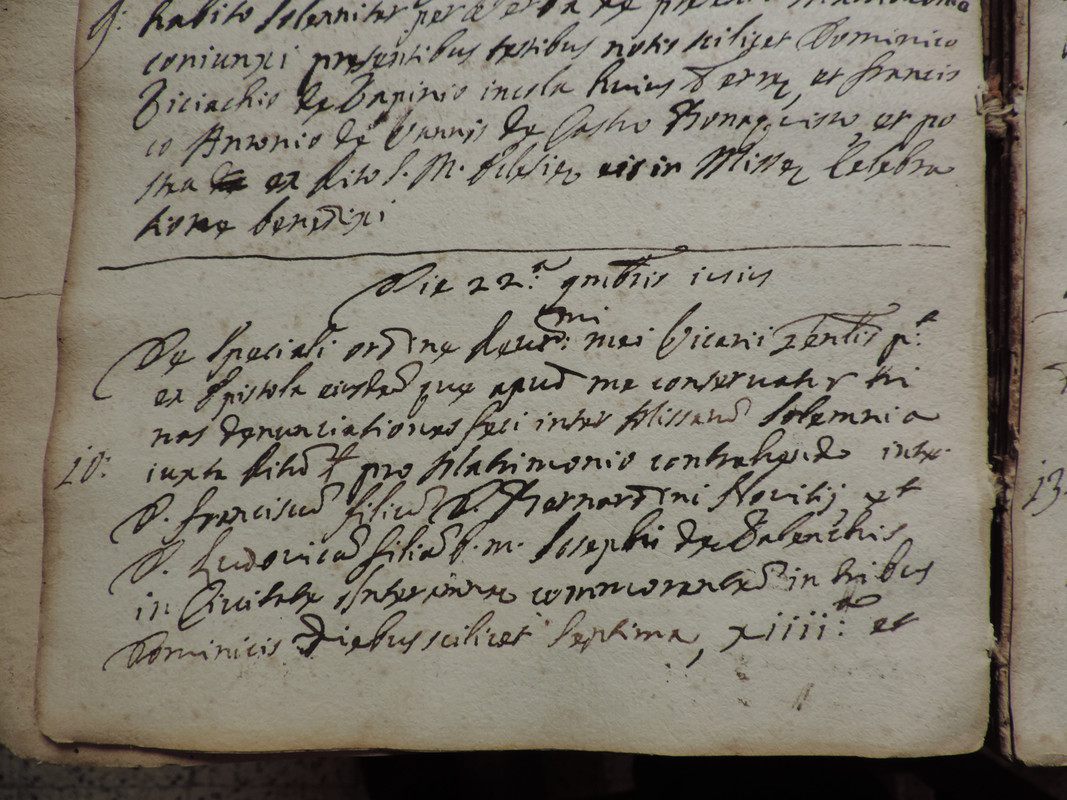 9: habito solenniter per verba de
coniunxi presentibus testibus notis scilicet Dominico
de incola huius Terrę, et Francis
co Antonio de Vannis de Castro et po
stea ex Rito S. M. Eclesię eis in Missę Celebra
tione benedixi
Die 22.a 9mbris
De speciali ordine Reverd:mi mei Vicarii
ex Epistola eiusdē quę apud me conservatur tri
nas denunciationes feci inter Missarū solemnia
10: iuxta Ritū pro Matrimonio contrahendo inter
D. Franciscū filiū D. Bernardini Novilij et
D. Ludovicā filiā b. m. Iosephi de Valentibus
in Civitate Interamnae commorantē in tribus
Dominicis Diebus scilicet Septima, xiiii:a et
13